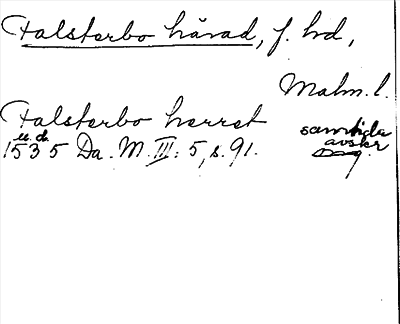 Falsterbo härad, f. hd,
Malm. l.
Falsterbo herret
u. d.
1535 Da. M. III: 5, s. 91.
samtida
avskr